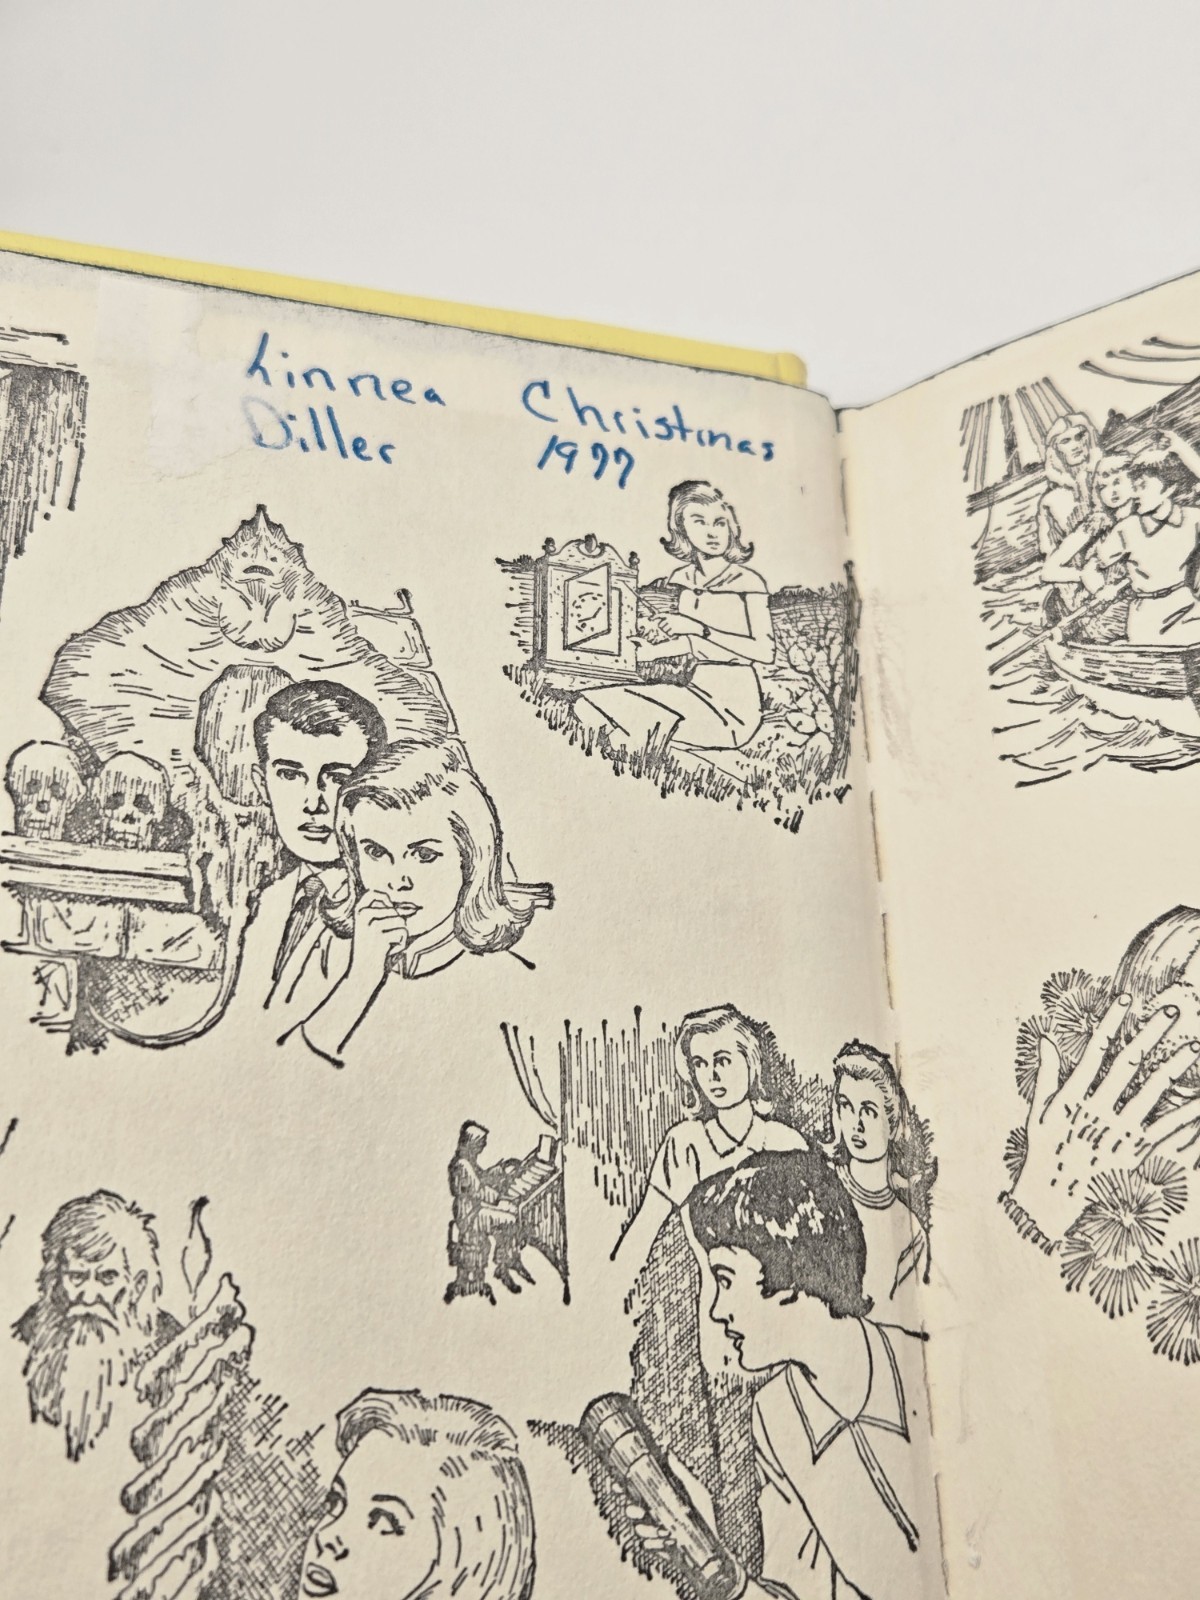 Linnea Christmas
Diller 1977